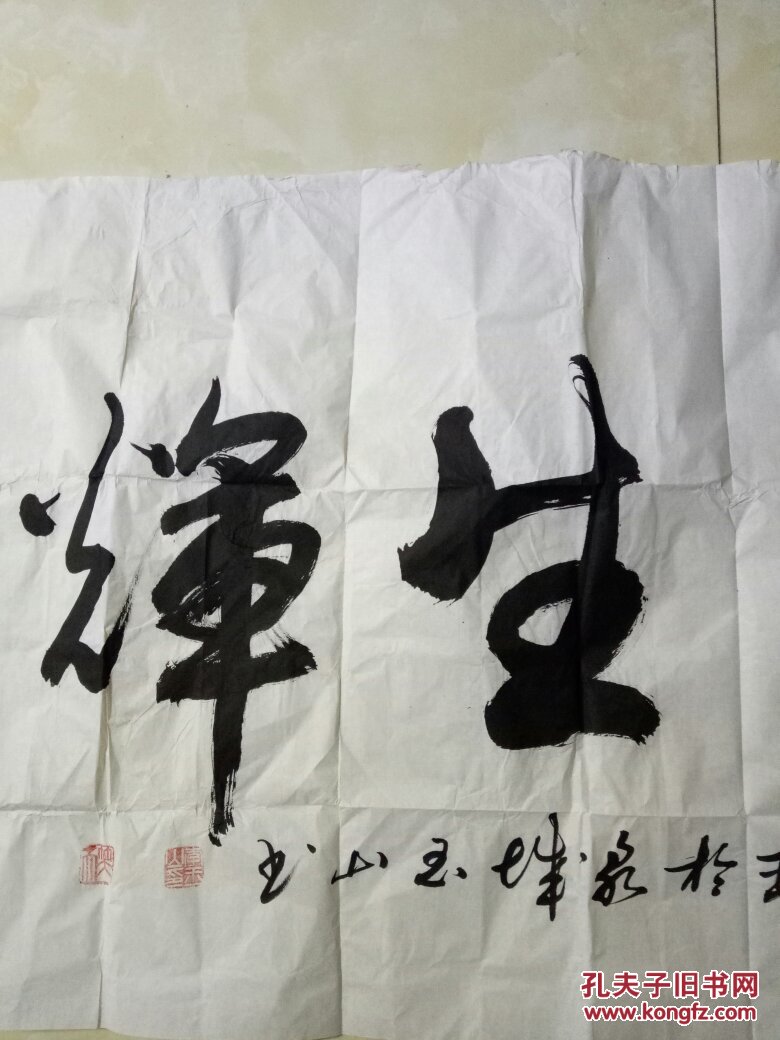 生輝
於泉城玉山书
孔夫子旧书网
www.kongfz.com